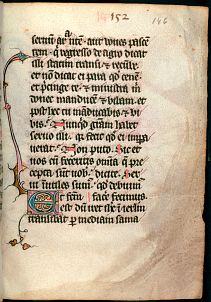 152 146
seruum ar nte aut oues pascen
tem q regresso de agro dicat
illi statim transi & recube
et non dicat ei para qd cene
et pcinge te & ministra m
donec manduce & bibam et
post hec tu manducabis & bi
bis Nunqd gram habet
seruo illi qr fecit q ei impa
uerat non puto Sic et
uos cu feceritis omnia q pre
cepta sunt uob dicite Serui
inutiles sum qd debuim
facere fecimus
Et fcm est du iret ihc i ierlm
transibat p mediam sama